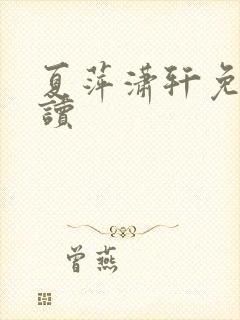 夏萍潇轩免
讀
曾燕